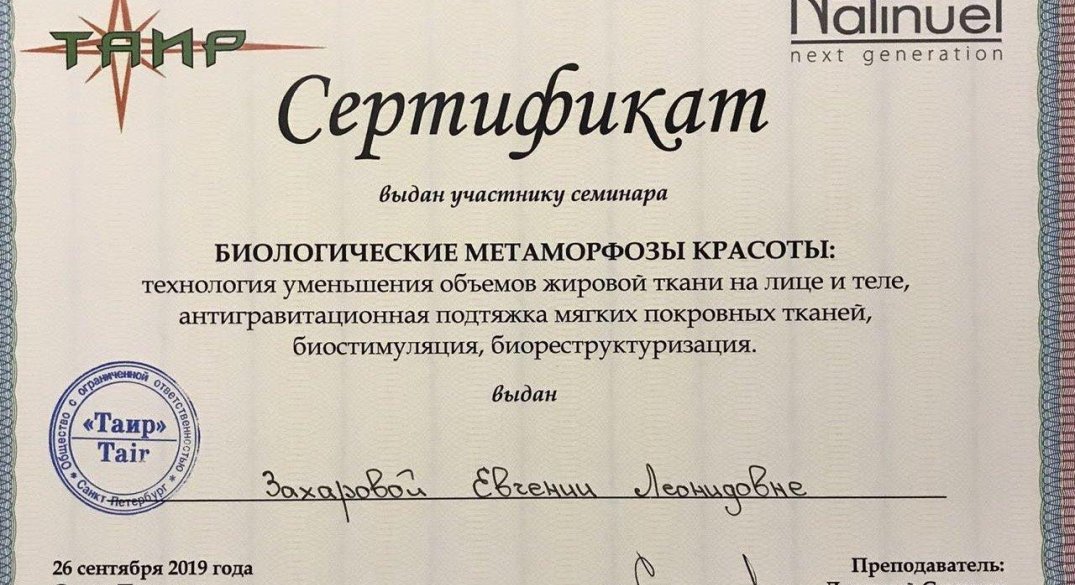 ТАИР
Nalinuel
next generation
Сертификат
выдан участнику семинара
БИОЛОГИЧЕСКИЕ МЕТАМОРФОЗЫ КРАСОТЫ:
технология уменьшения объемов жировой ткани на лице и теле,
антигравитационная подтяжка мягких покровных тканей,
биостимуляция, биореструктуризация.
выдан
Общество с ограниченной ответственностью
«Таир»
Tair
* Санкт-Петербург *
Захаровой Евгении Леонидовне
26 сентября 2019 года
Преподаватель: